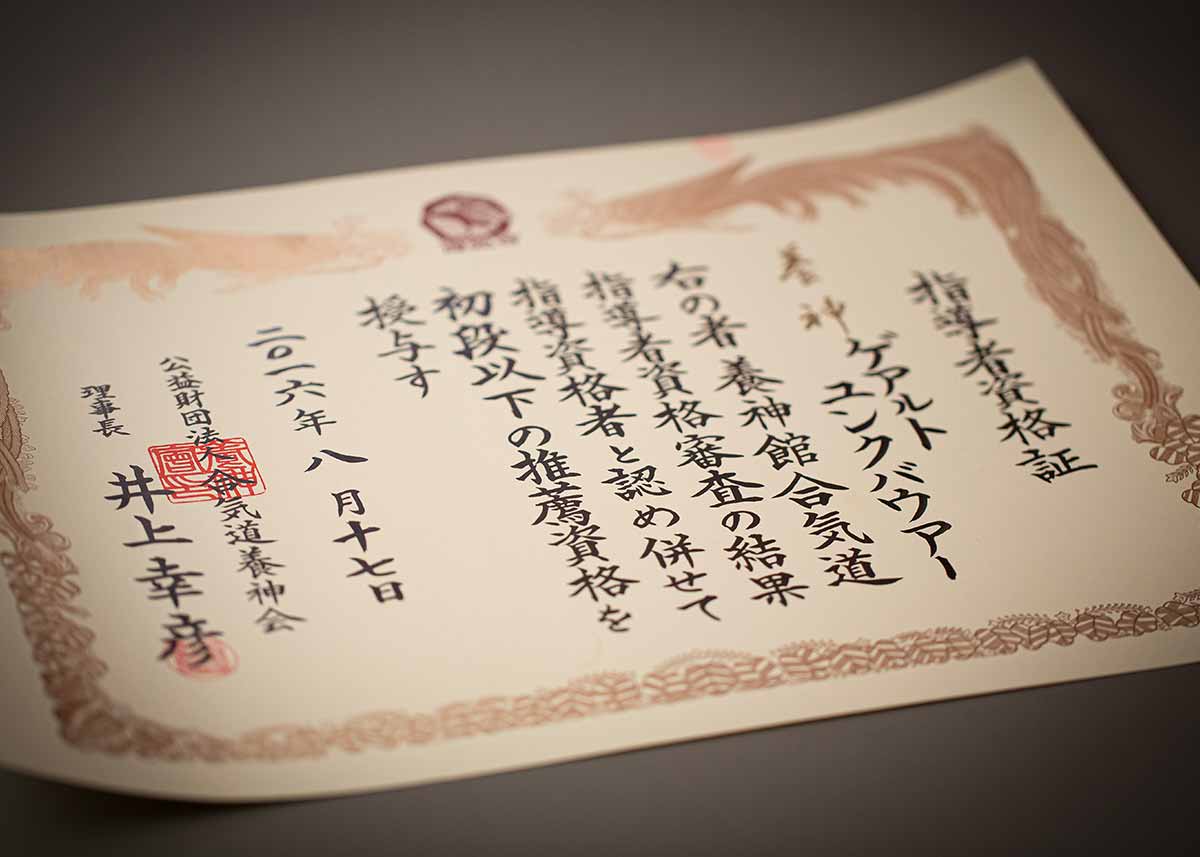 指導者資格証
養神
ゲアルト
ユンクバウアー
右の者養神館合気道
指導者資格審査の結果
指導資格者と認め併せて
初段以下の推薦資格を
授与す
二〇一六年八月十七日
公益財団法人合気道養神会
理事長
井上幸彦